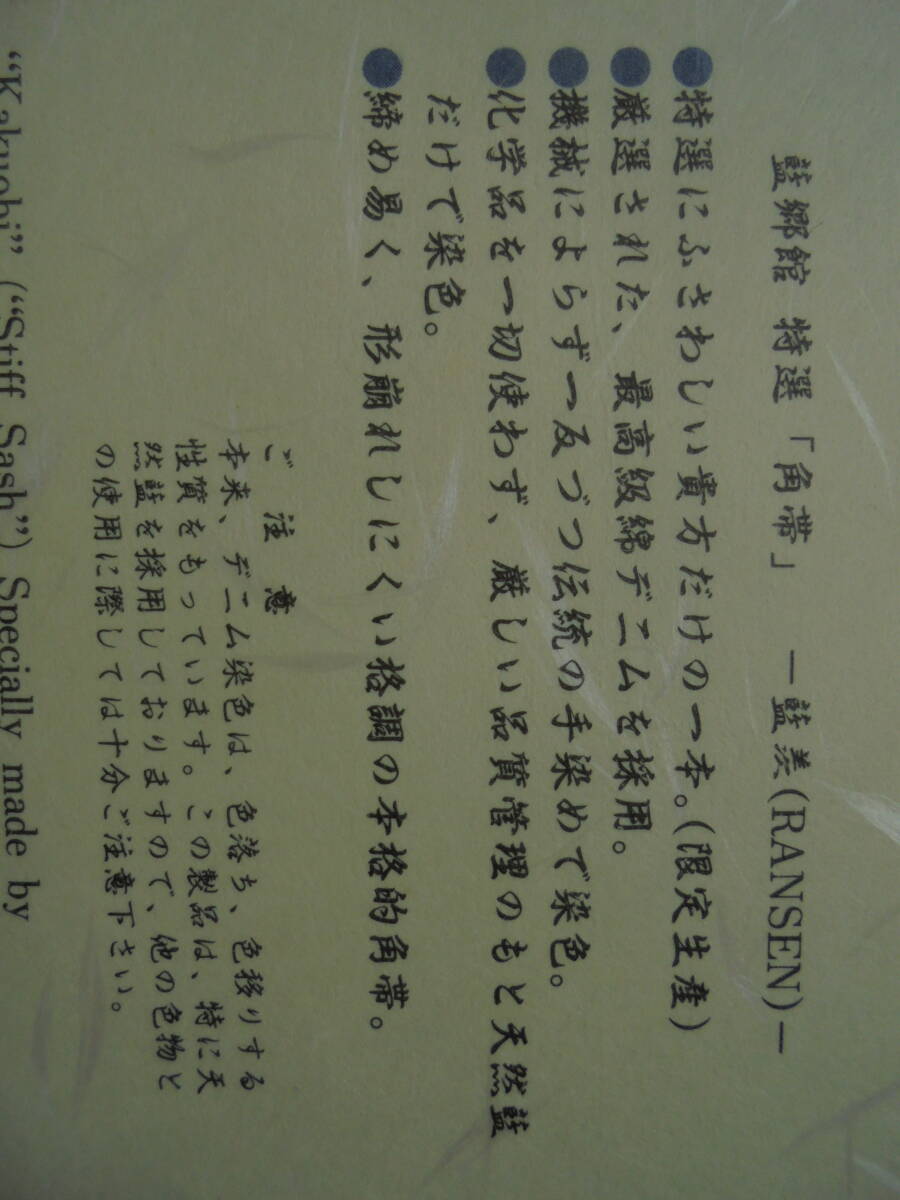 藍郷館 特選「角帯」 ―藍羨(RANSEN)―
●特選にふさわしい貴方だけの一本。(限定生産)
●厳選された、最高級綿デニムを採用。
●機械によらず一反づつ伝統の手染めで染色。
●化学品を一切使わず、厳しい品質管理のもと天然藍
だけで染色。
●締め易く、形崩れしにくい格調の本格的角帯。
ご 注 意
本来、デニム染色は、色落ち、色移りする
性質をもっています。この製品は、特に天
然藍を採用しておりますので、他の色物と
の使用に際しては十分ご注意下さい。
“Kakuobi” (“Stiff Sash”) Specially made by